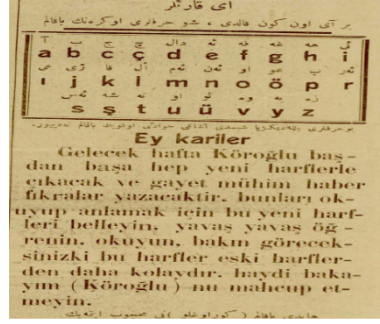 ای قارئلر
بر آی اون كون قالدی ، شو حرفلری اوكره‌نك باقالم
a b c ç d e f g h i
ı j k l m n o ö p r
s ş t u ü v y z
Ey kariler
Gelecek hafta Köroğlu baş-
dan başa hep yeni harflerle
çıkacak ve gayet mühim haber
fıkralar yazacaktir. bunları ok-
uyup anlamak için bu yeni harf-
leri belleyin, yavaş yavaş öğ-
renin, okuyun, bakın göreceк-
sinizki bu harfler eski harfler-
den daha kolaydır. haydi baka-
yım (Köroğlu) nu mahcup et-
meyin.